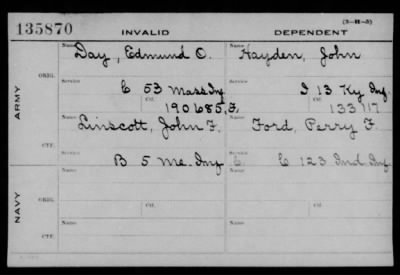 135870 INVALID DEPENDENT (3-H-5)
Name Day, Edmund O. Name Hayden, John
ARMY ORIG. Service C 53 Mass Inf Service I 13 Ky Inf.
Ctf. 190685, Ctf. 133117
Name Linscott, John F. Name Ford, Perry F.
CTF. Service B 5 Me. Inf Service C 123 Ind. Inf.
NAVY ORIG. Name Name
Service Ctf. Service Ctf.
CTF. Name Name
Service Service